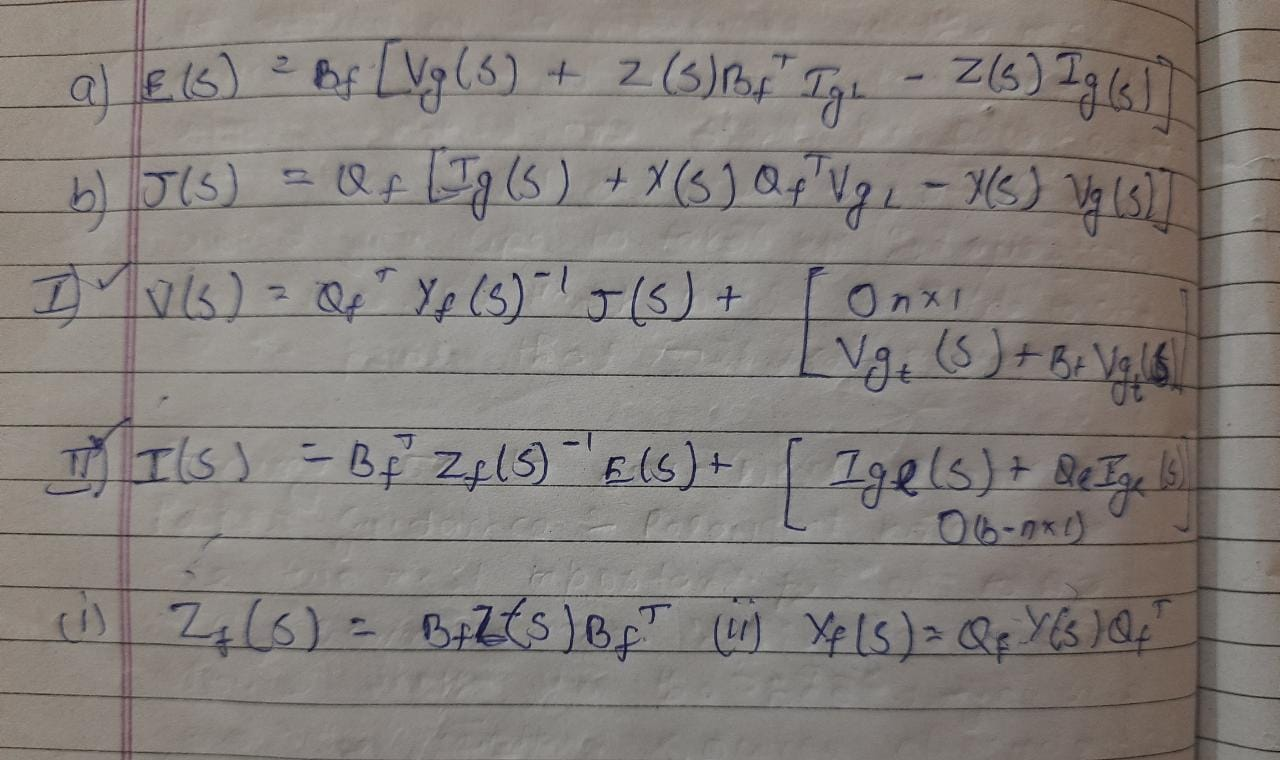 a) E(S) = Bf [Vg(S) + Z(S)Bf^T IgL - Z(S) Ig(s)]
b) J(S) = Qf [Ig(S) + Y(S) Qf^T VgL - Y(S) Vg(S)]
I) ✓ V(S) = Qf^T Yf(S)^-1 J(S) + [On×1
Vgt (S) + Bt Vgt(S)]
II) ✓ I(S) = Bf^T Zf(S)^-1 E(S) + [Igl(S) + QlIgl (s)
O(b-n×1)]
(i) Zf(S) = BfZ(S)Bf^T (ii) Yf(S) = Qf Y(S)Qf^T